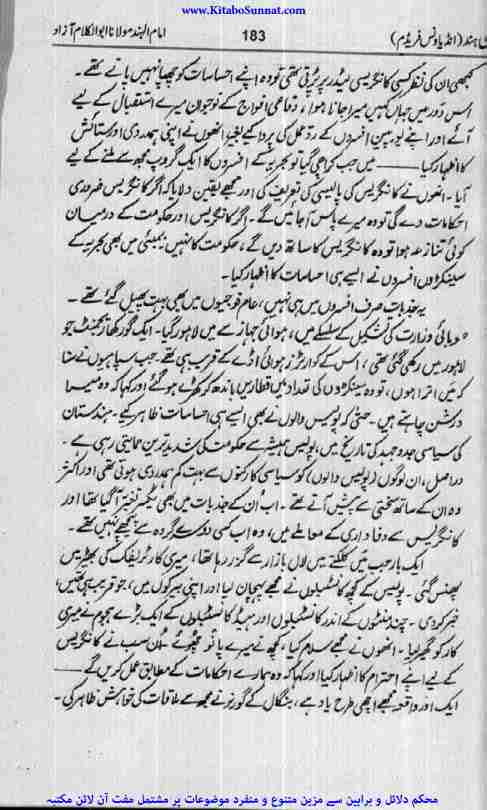 www.KitaboSunnat.com
ہند (انڈیا ونس فریڈم) 183 امام الہند مولانا ابوالکلام آزاد
کبھی ان کی نظر کسی کانگریسی لیڈر پر پڑتی تھی تو وہ اپنے احساسات کو چھپا نہیں پاتے تھے۔
اس دور میں جہاں کہیں میرا جانا ہوا، دفاعی افواج کے نوجوان میرے استقبال کے لیے
آئے اور اپنے یوروپین افسروں کے ردِ عمل کی پروا کیے بغیر انھوں نے اپنی ہمدردی اور ستائش
کا اظہار کیا ——— میں جب کراچی گیا تو بحریہ کے افسروں کا ایک گروپ مجھ سے ملنے کے لیے
آیا۔ انھوں نے کانگریس کی پالیسی کی تعریف کی اور مجھے یقین دلایا کہ اگر کانگریس ضروری
احکامات دے گی تو وہ میرے پاس آ جائیں گے۔ اگر کانگریس اور حکومت کے درمیان
کوئی تنازعہ ہوا تو وہ کانگریس کا ساتھ دیں گے، حکومت کا نہیں۔ بمبئی میں بھی بحریہ کے
سینکڑوں افسروں نے ایسے ہی احساسات کا اظہار کیا۔
یہ جذبات صرف افسروں میں ہی نہیں، عام فوجیوں میں بھی بہت پھیل گئے تھے۔
صوبائی وزارت کی تشکیل کے سلسلے میں، ہوائی جہاز سے میں لاہور گیا۔ ایک گورکھا رجمنٹ جو
لاہور میں رکھی گئی تھی، اس کے کوارٹرز ہوائی اڈے کے قریب ہی تھے۔ جب سپاہیوں نے سنا
کہ میں آ رہا ہوں، تو وہ سینکڑوں کی تعداد میں قطاریں باندھ کر کھڑے ہو گئے اور کہا کہ وہ میرا
درشن چاہتے ہیں۔ حتیٰ کہ پولیس والوں نے بھی ایسے ہی احساسات ظاہر کیے۔ ہندستان
کی سیاسی جدوجہد کی تاریخ میں، پولیس ہمیشہ سے حکومت کی شدید ترین حمایتی رہی ہے۔
دراصل، ان لوگوں (پولیس والوں) کو سیاسی کارکنوں سے بہت کم ہمدردی ہوتی تھی اور اکثر
وہ ان کے ساتھ سختی سے پیش آتے تھے۔ اب ان کے جذبات میں بھی یکسر تغیر آ گیا تھا اور
کانگریس سے وفاداری کے معاملے میں، وہ اب کسی دوسرے گروہ سے پیچھے نہیں تھے۔
ایک بار جب میں کلکتے میں لال بازار سے گزر رہا تھا، میری کار ٹریفک کی بھیڑ میں
پھنس گئی۔ پولیس کے کچھ کانسٹبلوں نے مجھے پہچان لیا اور اپنی بیرکوں میں، جو قریب ہی تھیں،
خبر کر دی۔ چند منٹوں کے اندر کانسٹبلوں اور ہیڈ کانسٹبلوں کے ایک بڑے ہجوم نے میری
کار کو گھیر لیا۔ انھوں نے مجھے سلام کیا، کچھ نے میرے پاؤں چھوئے۔ ان سب نے کانگریس
کے لیے اپنے احترام کا اظہار کیا اور کہا کہ وہ ہمارے احکامات کے مطابق عمل کریں گے ———
ایک اور واقعہ مجھے اچھی طرح یاد ہے، بنگال کے گورنر نے مجھ سے ملاقات کی خواہش ظاہر کی۔
محکم دلائل و براہین سے مزین متنوع و منفرد موضوعات پر مشتمل مفت آن لائن مکتبہ